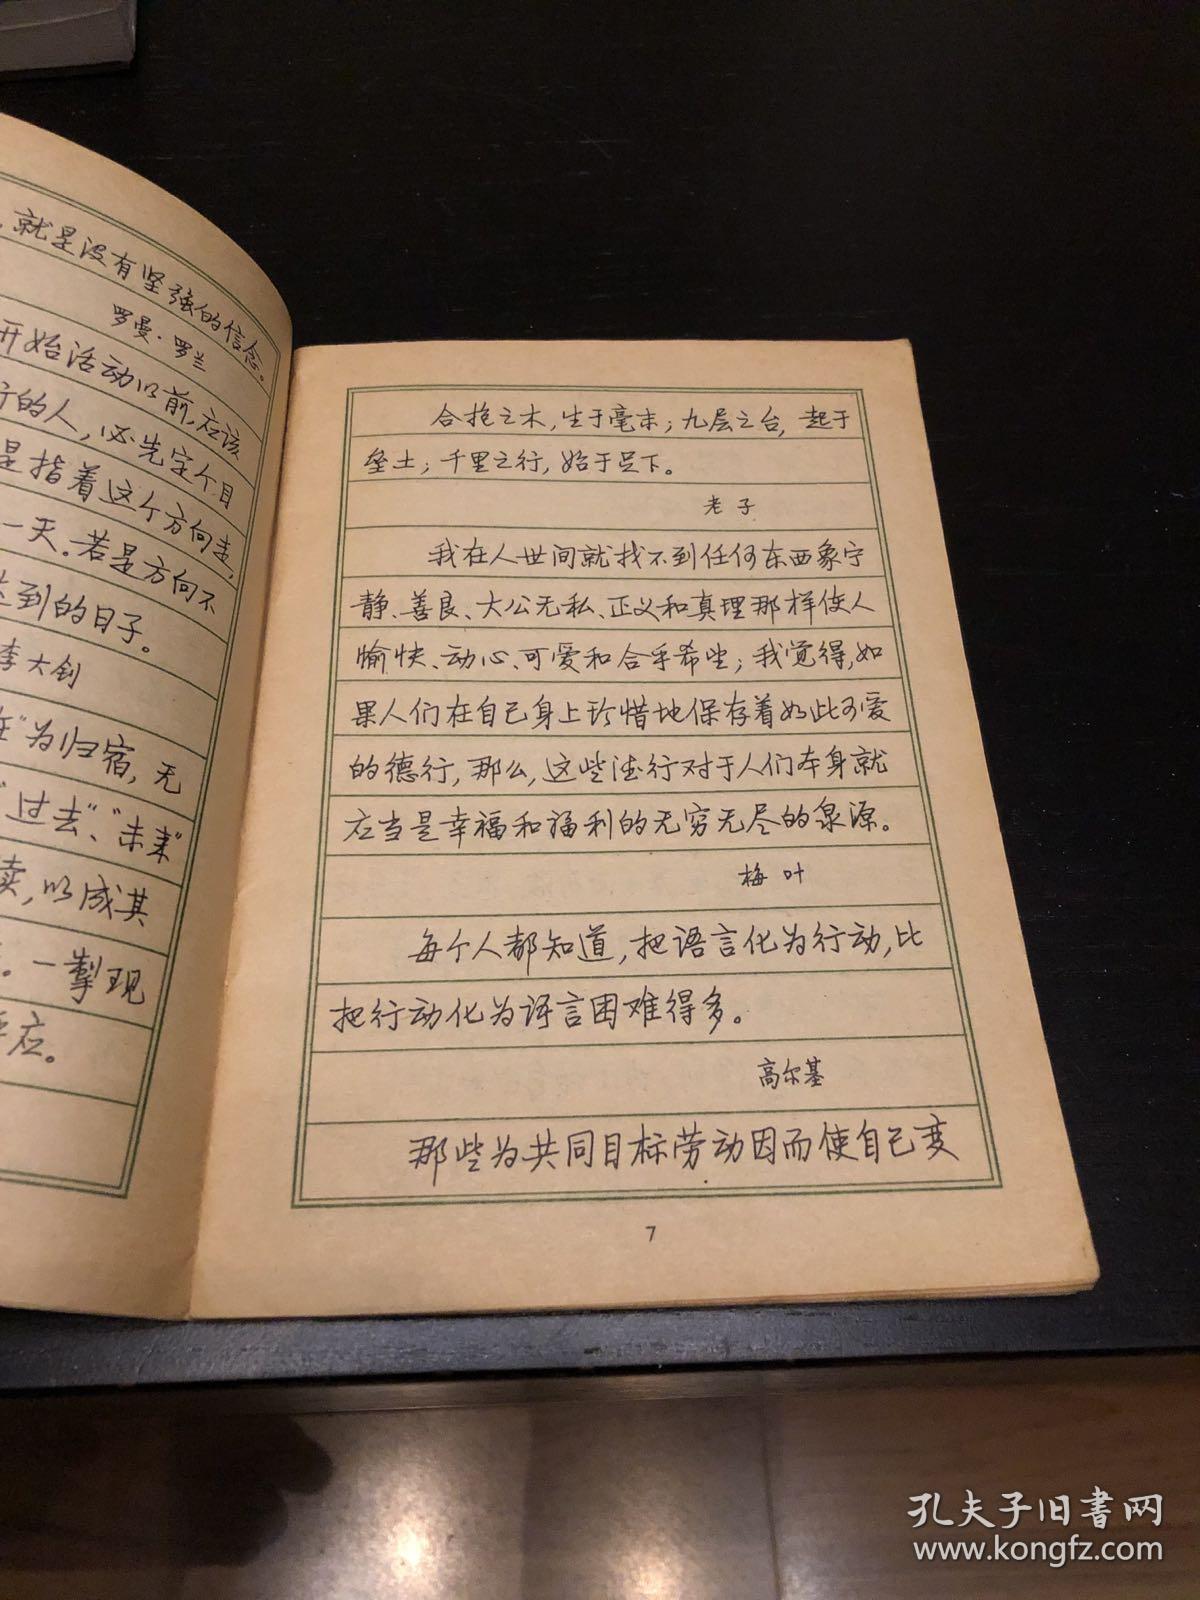 ，就是没有坚强的信念。
罗曼·罗兰
开始活动以前，应该
行的人，必先定个目
是指着这个方向走，
一天。若是方向不
达到的日子。
李大钊
在"为归宿，无
"过去"、"未来"
卖，以成其
。一掣现
应。
合抱之木，生于毫末；九层之台，起于
垒土；千里之行，始于足下。
老子
我在人世间就找不到任何东西象宁
静、善良、大公无私、正义和真理那样使人
愉快、动心、可爱和合乎希望；我觉得，如
果人们在自己身上珍惜地保存着如此可爱
的德行，那么，这些德行对于人们本身就
应当是幸福和福利的无穷无尽的泉源。
梅叶
每个人都知道，把语言化为行动，比
把行动化为语言困难得多。
高尔基
那些为共同目标劳动因而使自己变
7
孔夫子旧书网
www.kongfz.com